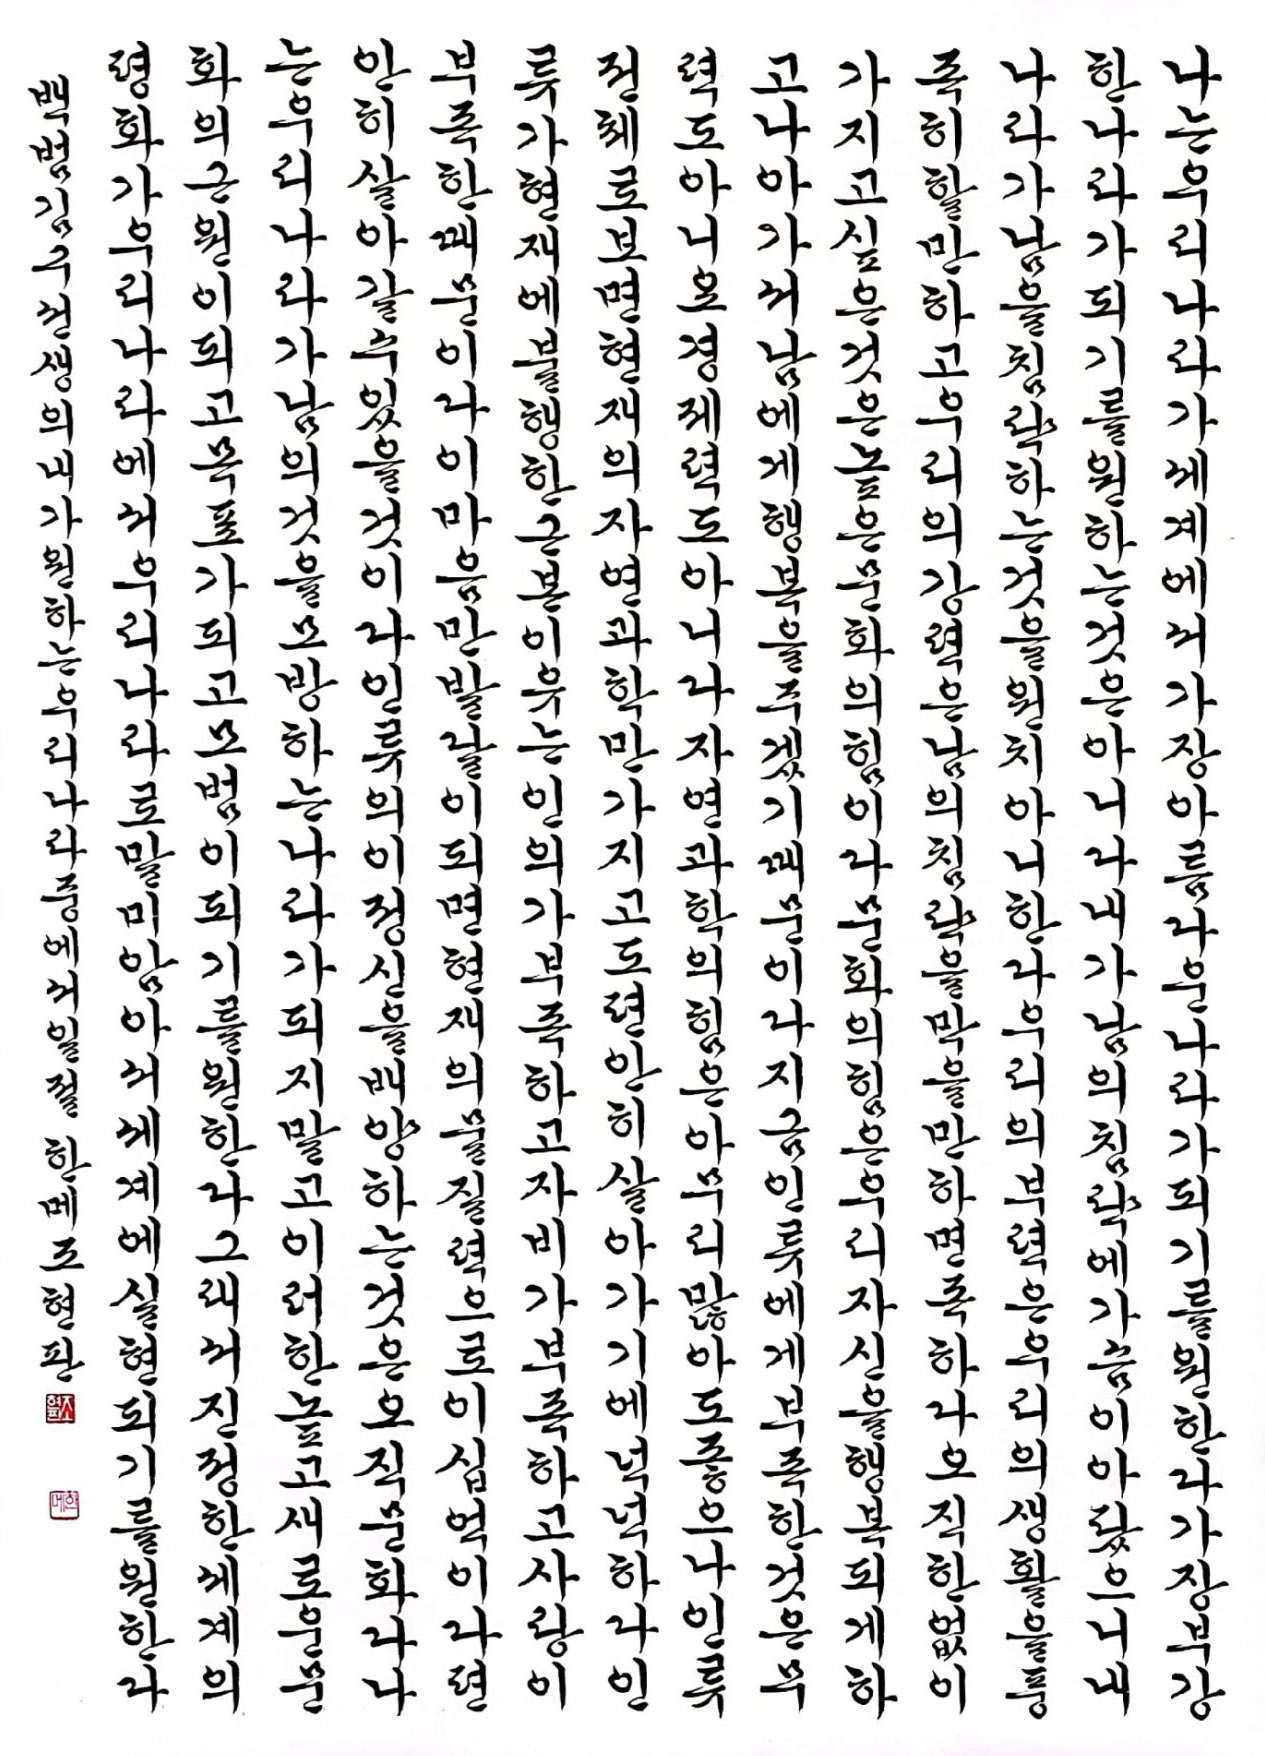 나는우리나라가세계에서가장아름다운나라가되기를원한다가장부강
한나라가되기를원하는것은아니다내가남의침략에가슴이아팠으니내
나라가남을침략하는것을원치아니한다우리의부력은우리의생활을풍
족히할만하고우리의강력은남의침략을막을만하면족하다오직한없이
가지고싶은것은높은문화의힘이다문화의힘은우리자신을행복되게하
고나아가서남에게행복을주겠기때문이다지금인류에게부족한것은무
력도아니요경제력도아니다자연과학의힘은아무리많아도좋으나인류
전체로보면현재의자연과학만가지고도편안히살아가기에넉넉하다인
류가현재에불행한근본이유는인의가부족하고자비가부족하고사랑이
부족한때문이다이마음만발달이되면현재의물질력으로이십억이다편
안히살아갈수있을것이다인류의이정신을배양하는것은오직문화다나
는우리나라가남의것을모방하는나라가되지말고이러한높고새로운문
화의근원이되고목표가되고모범이되기를원한다그래서진정한세계의
평화가우리나라에서우리나라로말미암아서세계에실현되기를원한다
백범김구선생의내가원하는우리나라중에서일절 한메조현판
한메